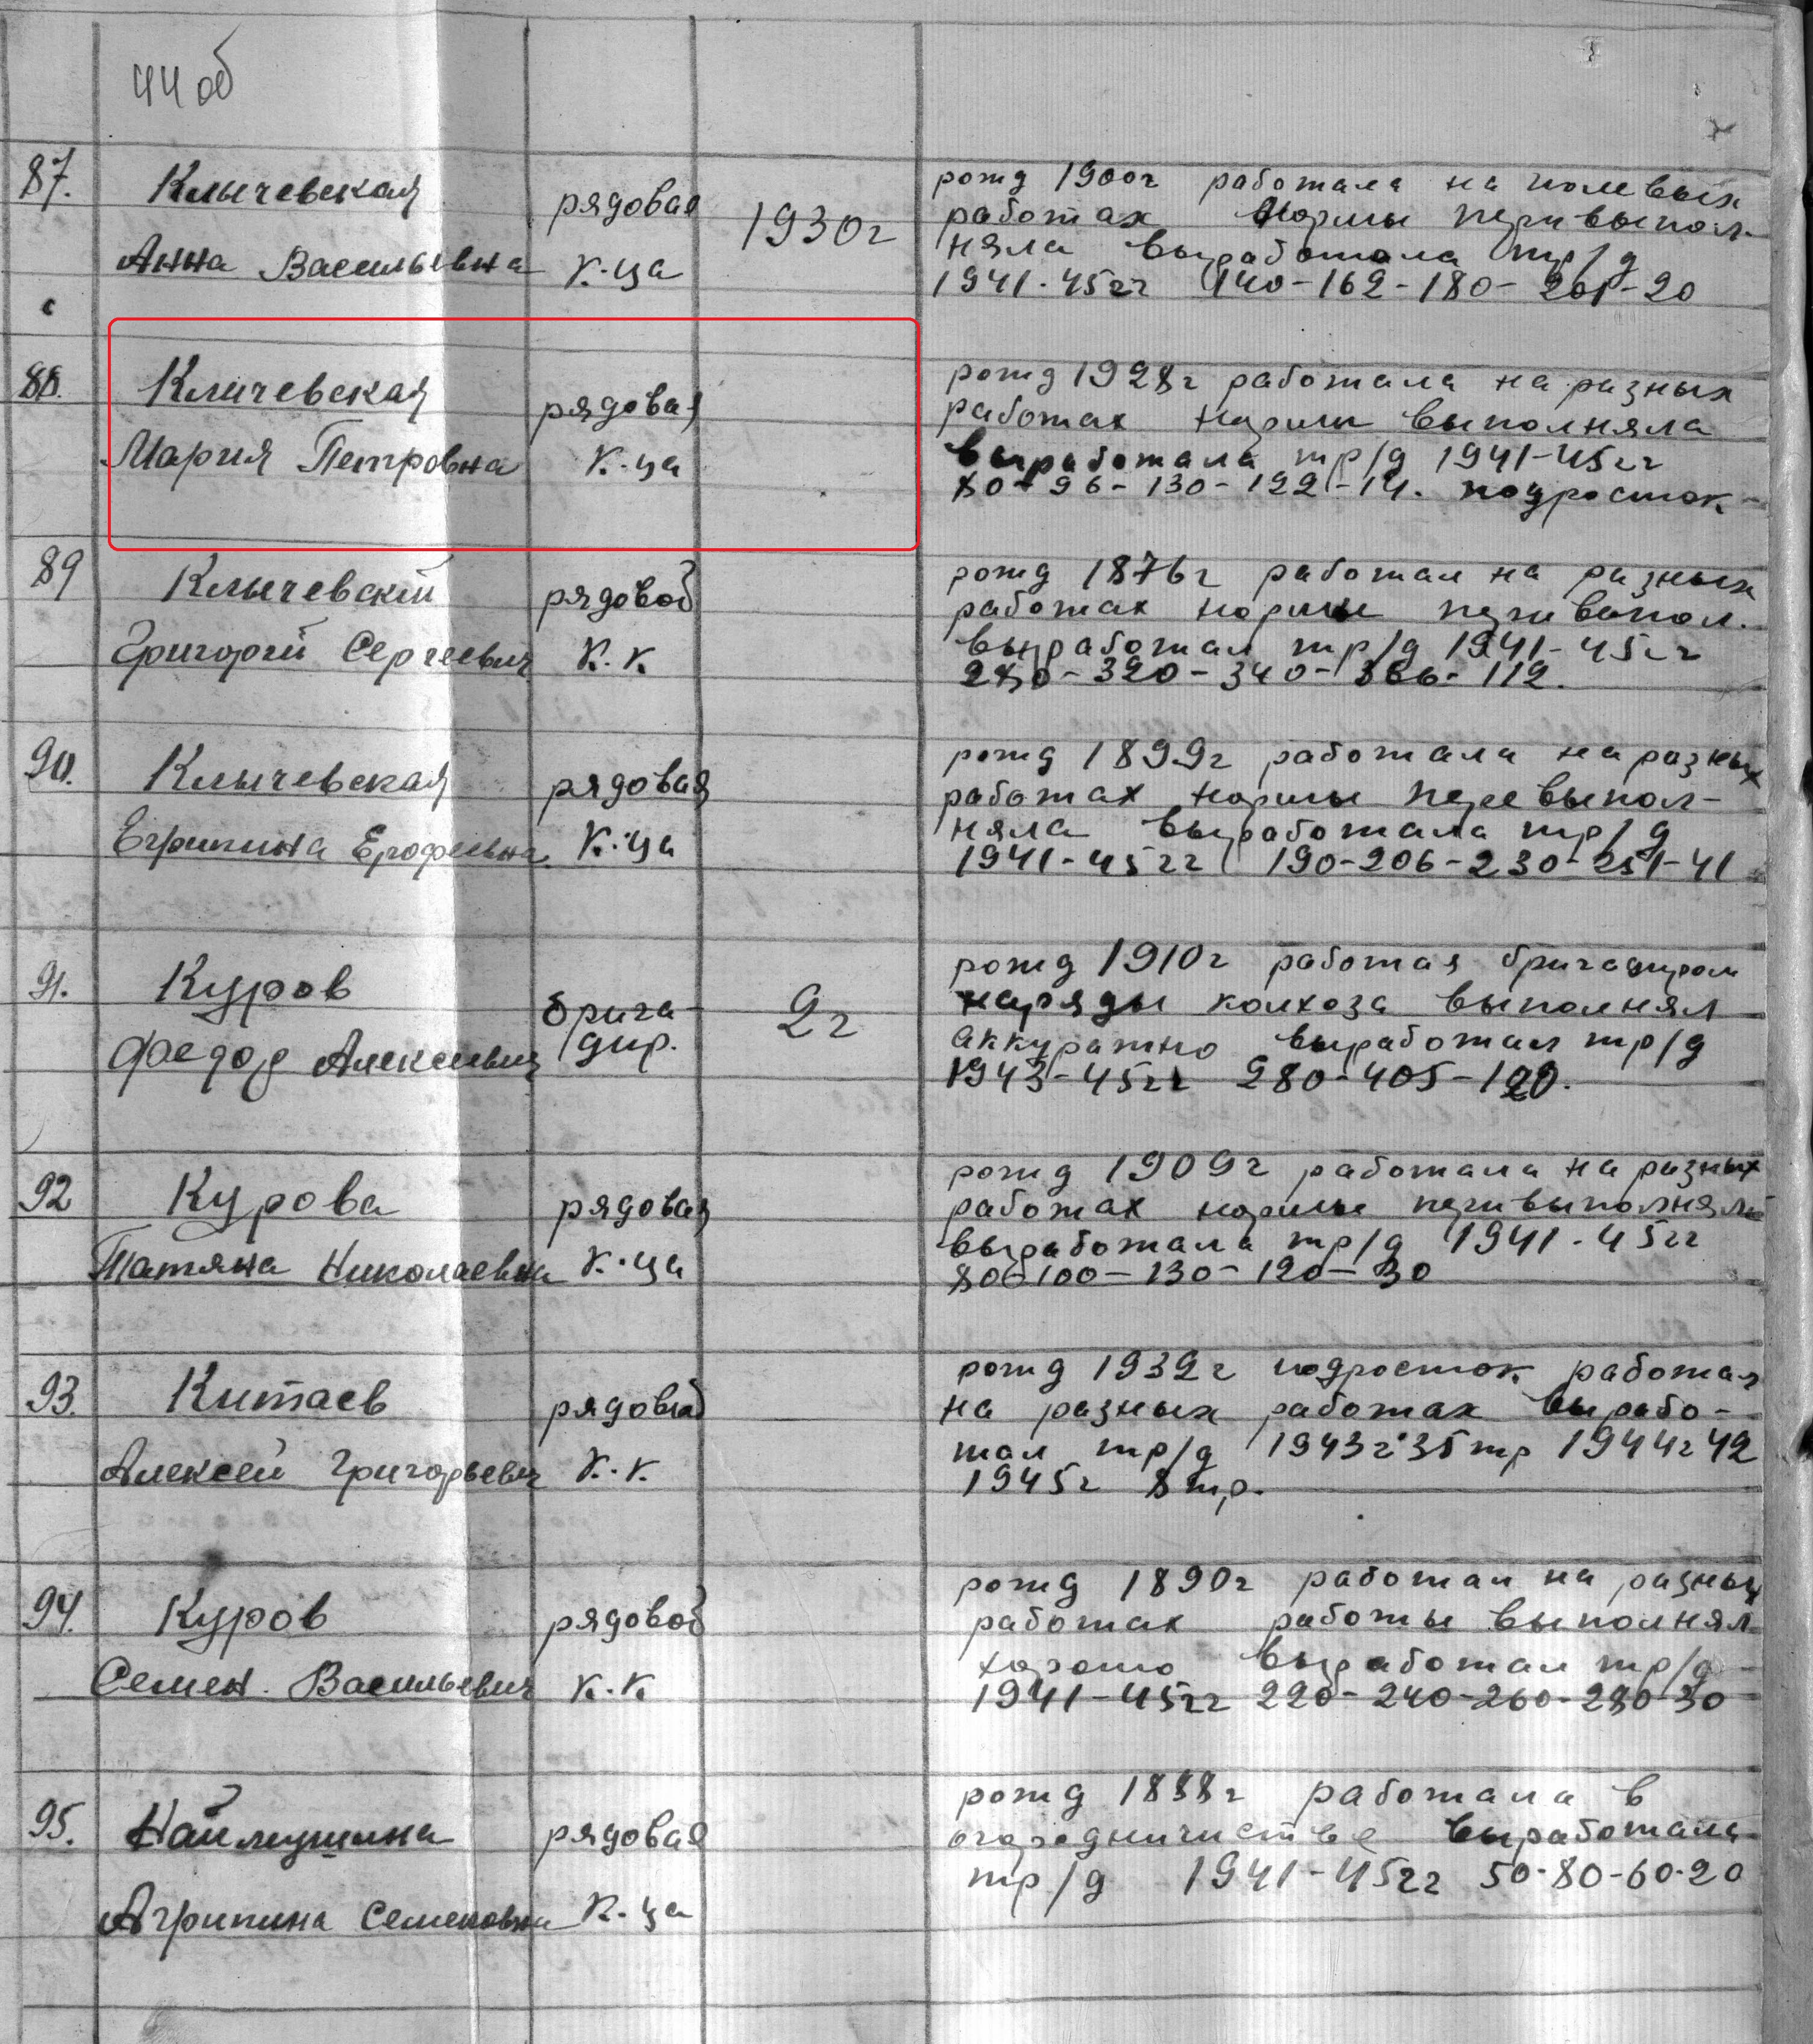 44 об
87.
Клычевская
Анна Васильевна
рядовая
к-ца
1930г
рожд 1900г работала на полевых
работах Нормы перевыпол-
няла выработала тр/д
1941-45гг 140-162-180-201-20
88.
Кличевская
Мария Петровна
рядовая
к-ца
рожд 1928г работала на разных
работах нормы выполняла
выработала тр/д 1941-45гг
80-96-130-122-14. подросток-
89
Клычевский
Григорий Сергеевич
рядовой
К.К
рожд 1876г работал на разных
работах нормы перевыпол.
выработал тр/д 1941-45гг
280-320-340-366-112.
90.
Клычевская
Егрипина Ерофеевна
рядовая
К-ца
рожд 1899г работала на разных
работах нормы перевыпол-
няла выработала тр/д
1941-45гг 190-206-230-251-41
91.
Куров
Федор Алексеевич
брига-
дир.
2г
рожд 1910г работая бригадиром
наряды колхоза выполнял
аккуратно выработал тр/д
1943-45гг 280-405-120.
92
Курова
Татяна Николаевна
рядовая
К-ца
рожд 1909г работала на разных
работах нормы перевыполняла
выработала тр/д 1941-45гг
80-100-130-120-30
93.
Китаев
Алексей Григорьевич
рядовой
К.К.
рожд 1932г подросток работал
на разных работах вырабо-
тал тр/д 1943г 35тр 1944г 42
1945г 8тр.
94.
Куров
Семен Васильевич
рядовой
К.К
рожд 1890г работал на разных
работах работы выполнял
хорошо выработал тр/д
1941-45гг 220-240-260-280-30
95.
Наймушина
Агрипина Семеновна
рядовая
К-ца
рожд 1888г работала в
огородничистве выработала
тр/д 1941-45гг 50-80-60-20